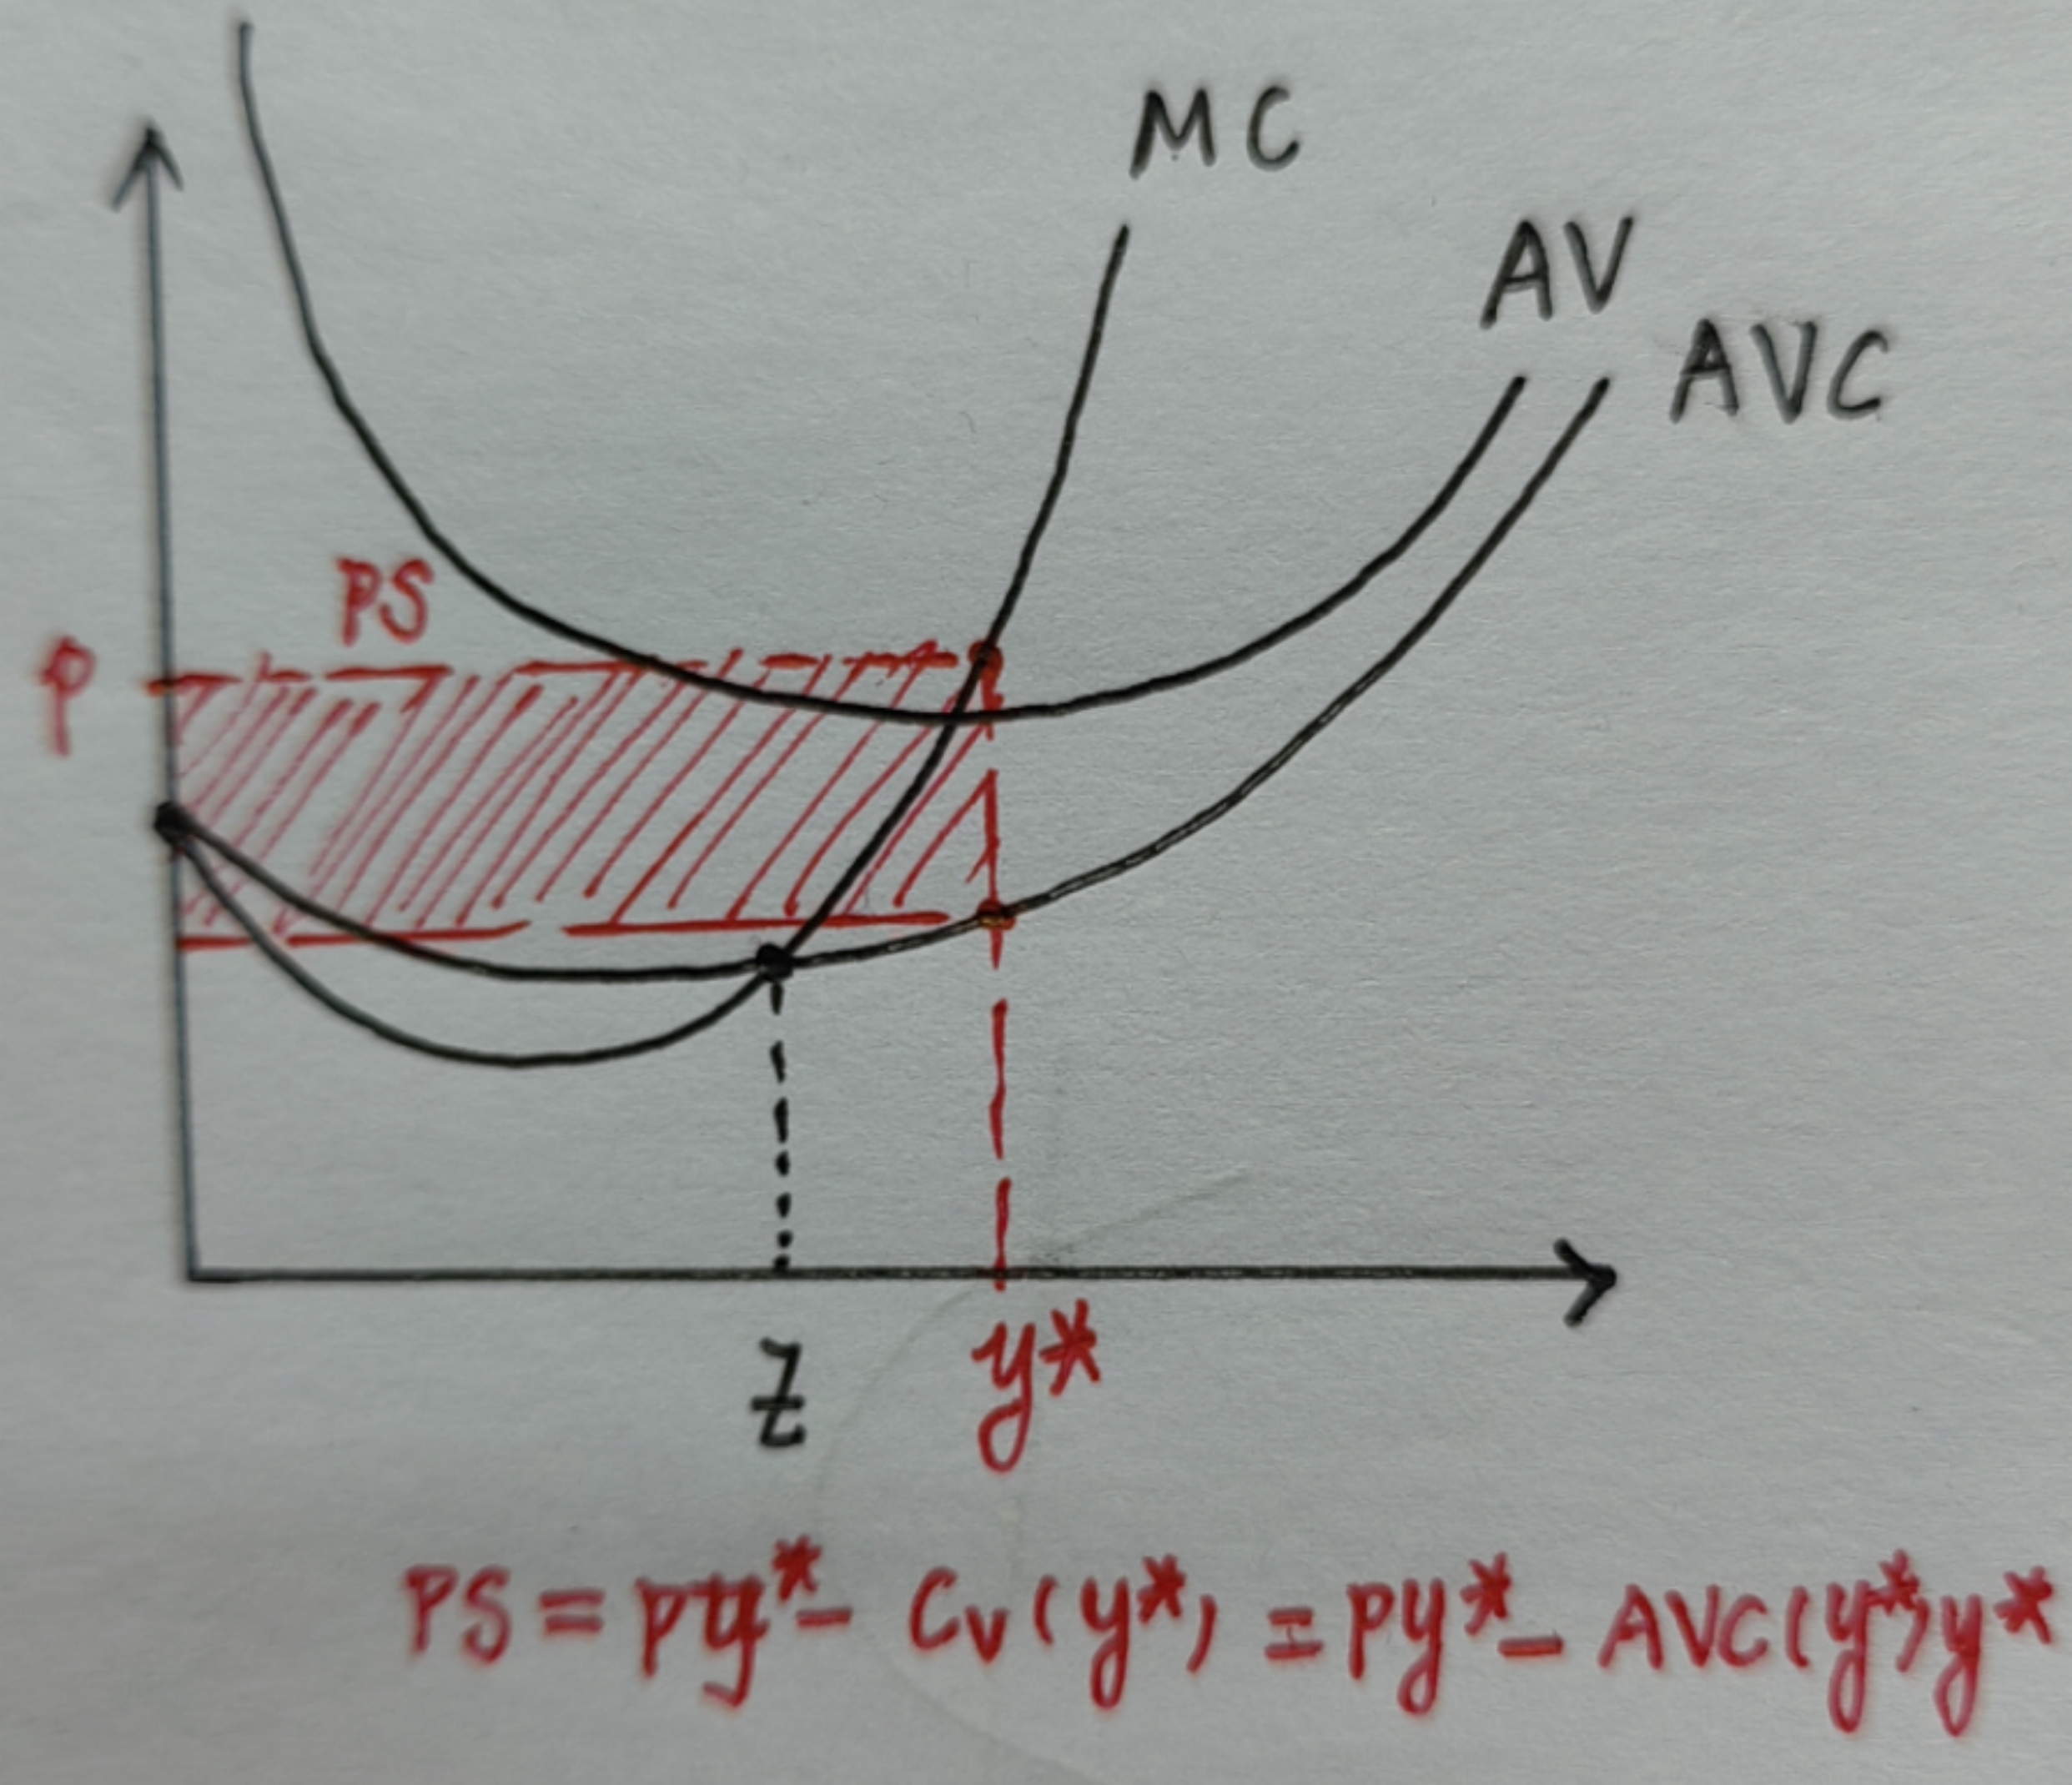 MC
AV
AVC
PS
P
z
y*
PS = py* - Cv(y*) = py* - AVC(y*)y*